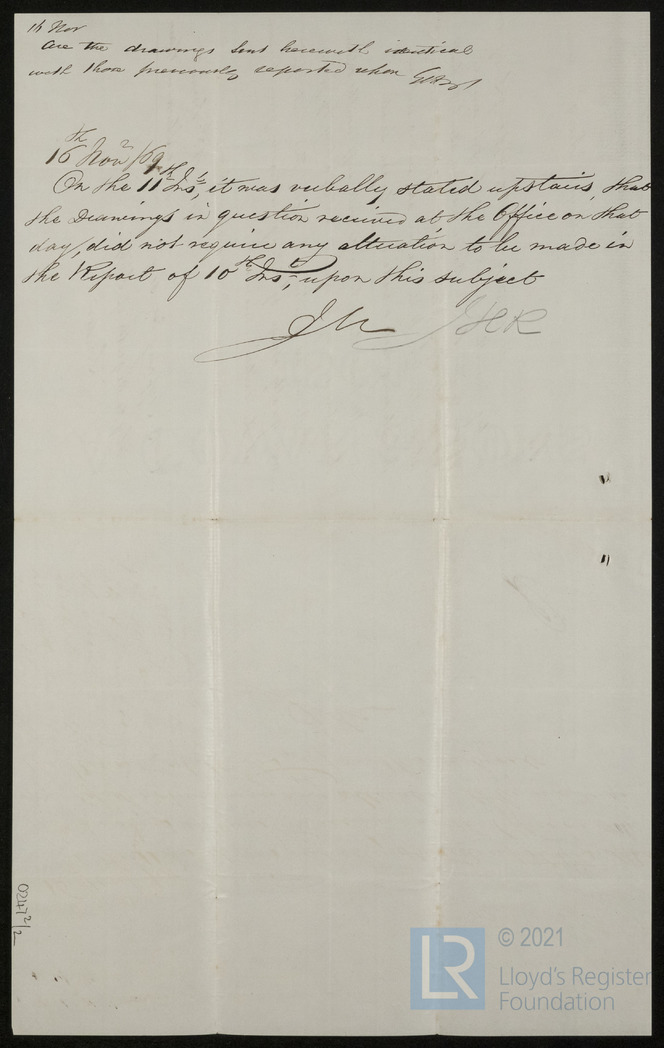 16 Nov
Are the drawings sent herewith identical
with those previously reported upon
16th Nov /69
On the 11th Inst, it was verbally stated upstairs, that
the Drawings in question received at the Office on that
day, did not require any alteration to be made in
the Report of 10th Inst, upon this subject
JHR
0247 2/2
LR
© 2021
Lloyd's Register
Foundation